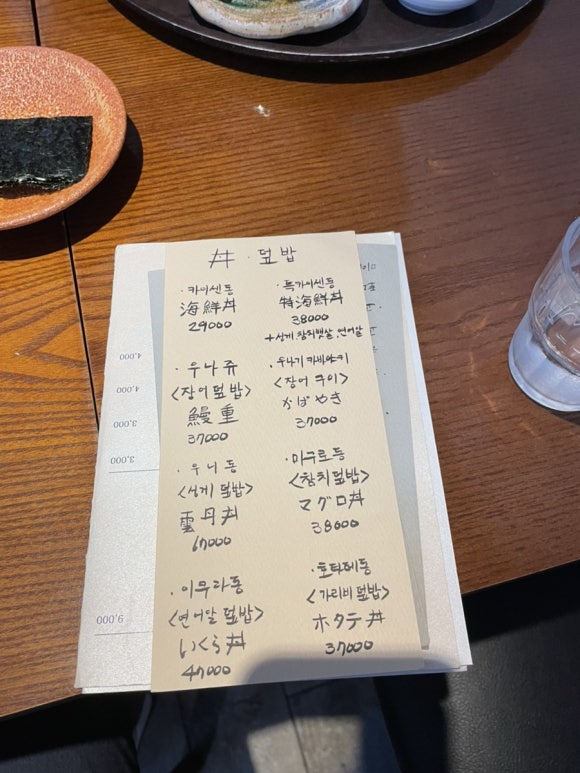 丼 · 덮밥
· 카이센동
海鮮丼
29000
· 특카이센동
特海鮮丼
38000
+성게.참치뱃살.연어알
· 우나쥬
<장어덮밥>
鰻重
37000
· 우나기카바야키
<장어구이>
かばやき
37000
· 우니동
<성게덮밥>
雲丹丼
67000
· 마구로동
<참치덮밥>
マグロ丼
38000
· 이쿠라동
<연어알덮밥>
いくら丼
47000
· 호타테동
<가리비덮밥>
ホタテ丼
37000
4,000
4,000
3,000
3,000
9,000